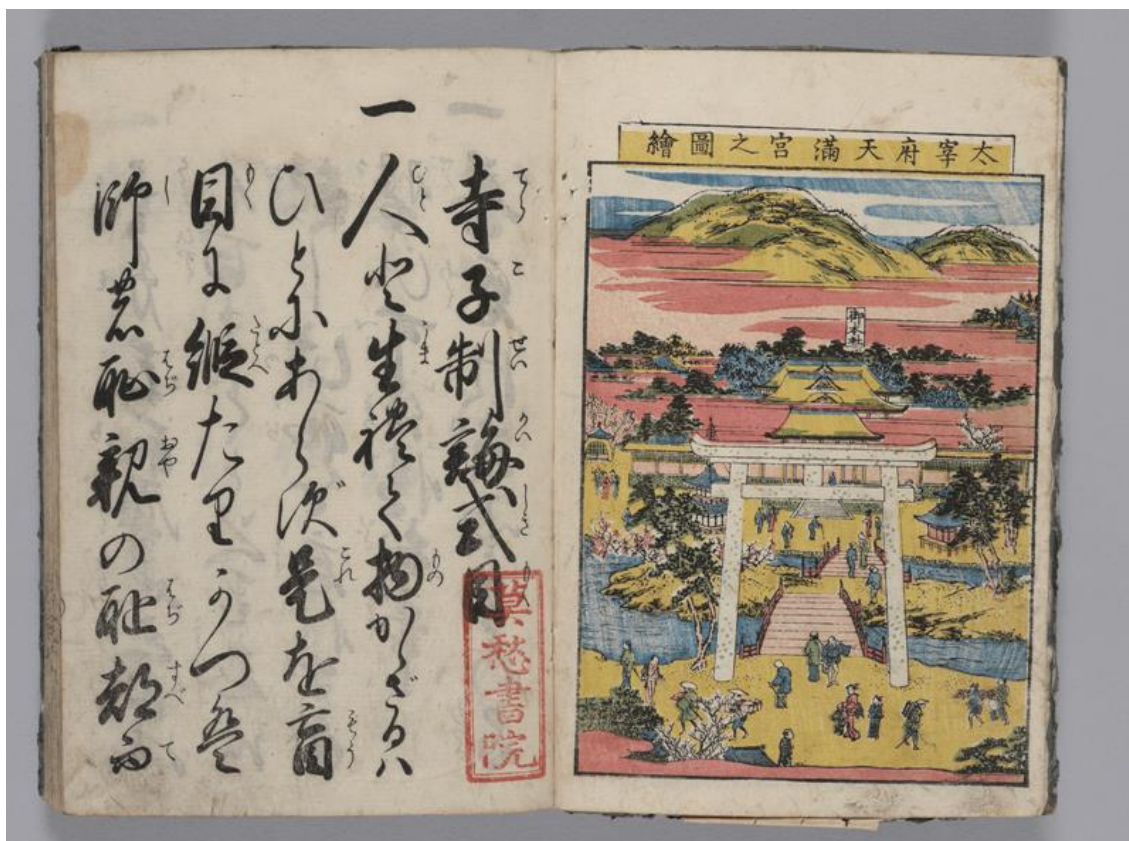 太宰府天滿宮之圖繪
御本社
寺子制誨式目
一 人と生れて物かゝざるハ
ひとにあらず是を盲
目に縦たりかつは
師の恥親の恥都而
莫愁書院